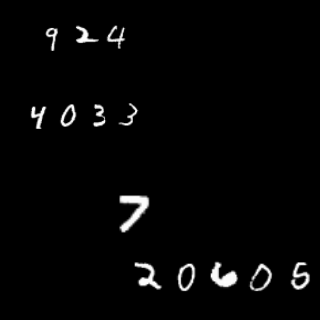 924
4033
7
20605